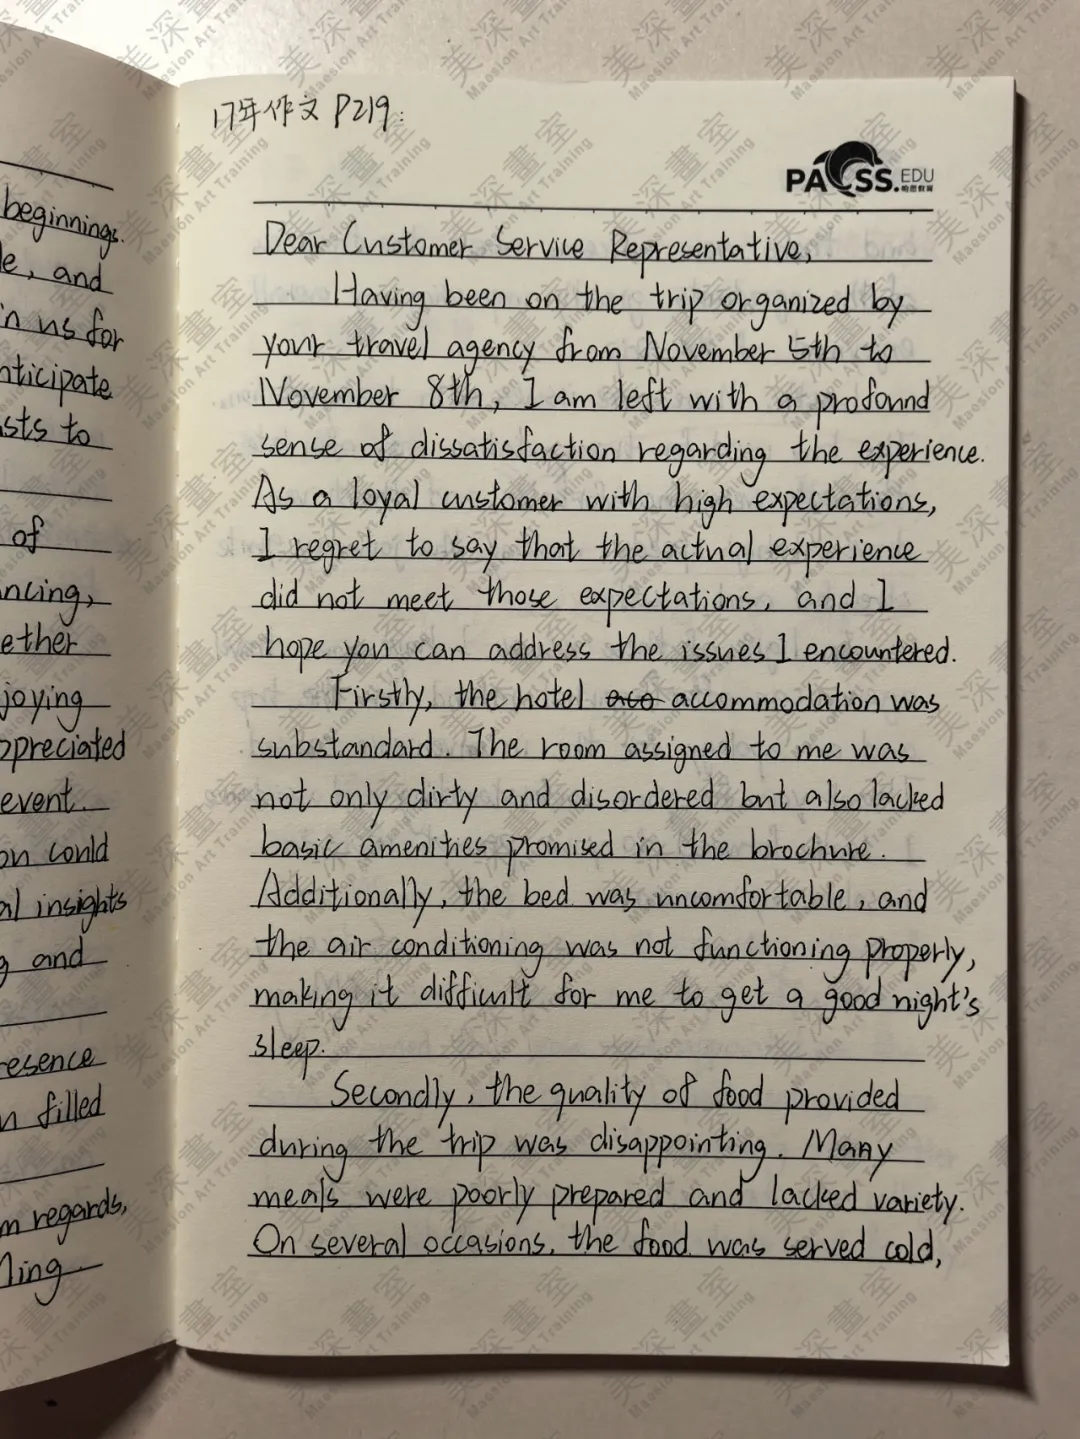 17年作文 P219:
PASS.EDU
beginnings.
le, and
in us for
nticipate
sts to
of
ncing,
ether
joying
ppreciated
event.
on could
al insights
g and
resence
n filled
m regards,
Ming
Dear Customer Service Representative,
Having been on the trip organized by
your travel agency from November 5th to
November 8th, I am left with a profound
sense of dissatisfaction regarding the experience.
As a loyal customer with high expectations,
I regret to say that the actual experience
did not meet those expectations, and I
hope you can address the issues I encountered.
Firstly, the hotel aco accommodation was
substandard. The room assigned to me was
not only dirty and disordered but also lacked
basic amenities promised in the brochure.
Additionally, the bed was uncomfortable, and
the air conditioning was not functioning properly,
making it difficult for me to get a good night's
sleep.
Secondly, the quality of food provided
during the trip was disappointing. Many
meals were poorly prepared and lacked variety.
On several occasions, the food was served cold,
美深畫室
Maesion Art Training